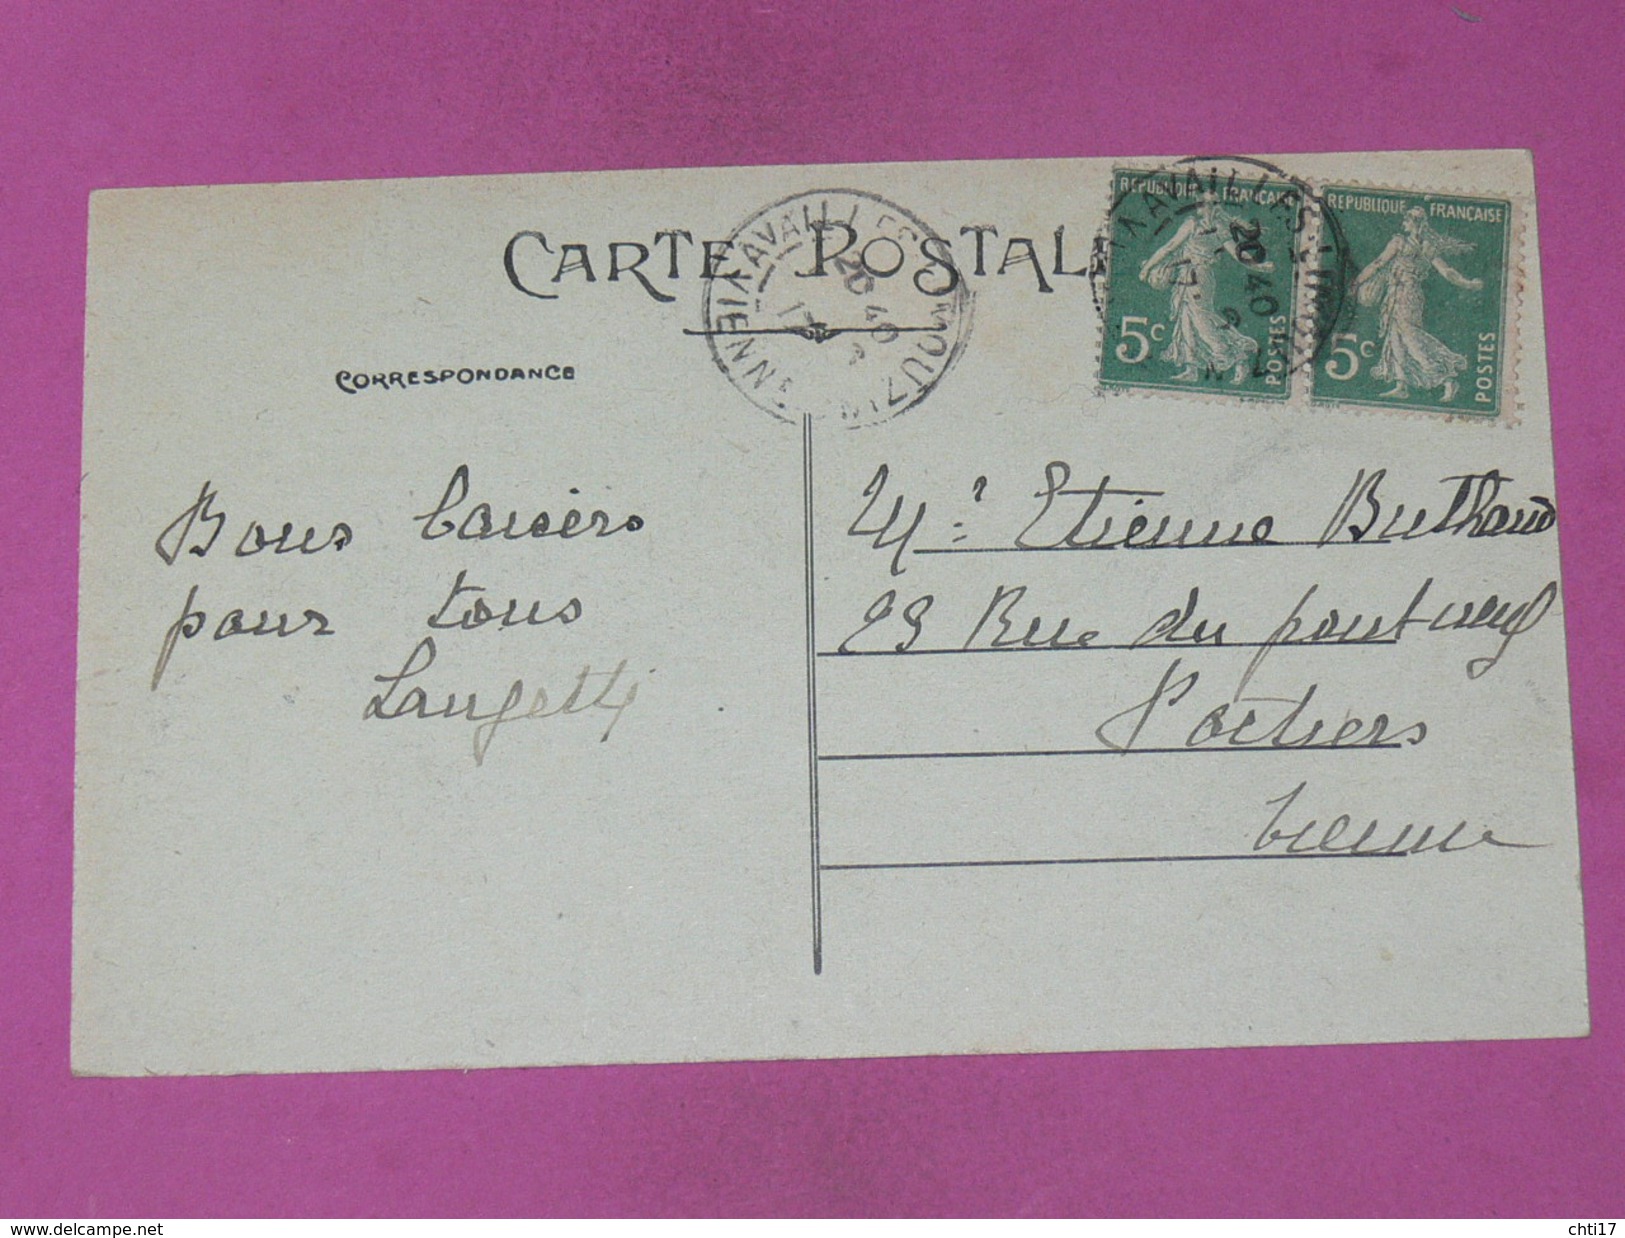 CARTE POSTALE
CORRESPONDANCE
AVAILLES LIMOUZINE
VIENNE
20 40
17
REPUBLIQUE FRANÇAISE
5c
POSTES
REPUBLIQUE FRANÇAISE
5c
POSTES
Bons baisers
pour tous
Mr. Etienne
23 Rue du pont neuf
Poitiers
Vienne
www.delcampe.net
chti17